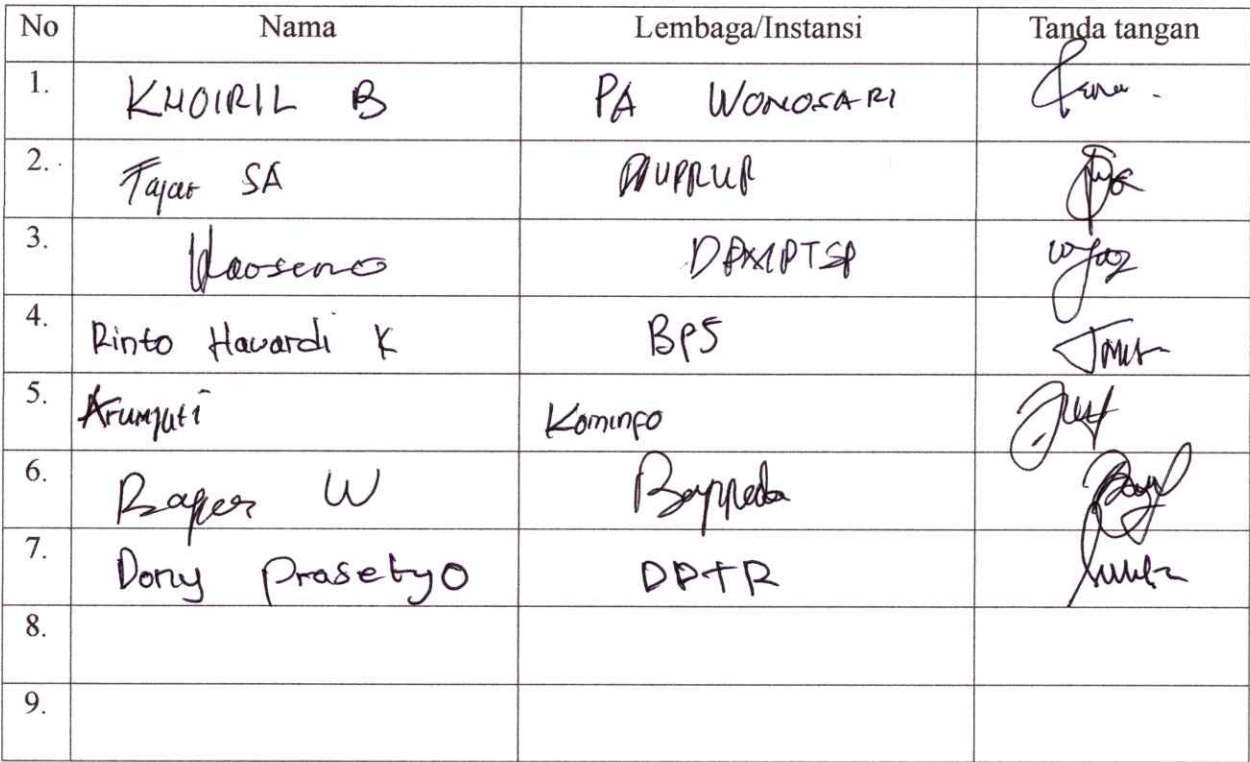 No Nama Lembaga/Instansi Tanda tangan
1. KHOIRIL B PA WONOSARI
2. Fajar SA
3. DPMPTSP
4. Rinto Hawardi K BPS
5. Arumjati Kominfo
6. W Bappeda
7. Dony Prasetyo DPTR
8.
9.